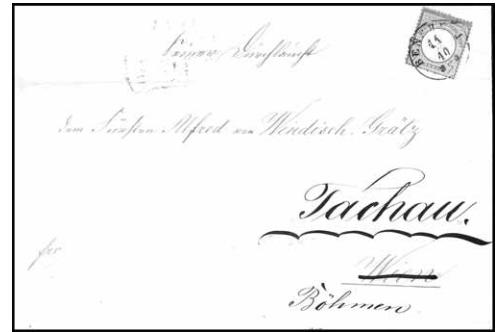 Seiner Durchlaucht
dem Fürsten Alfred von Windisch-Grätz
Tachau.
fro
Wien
Böhmen
11
10